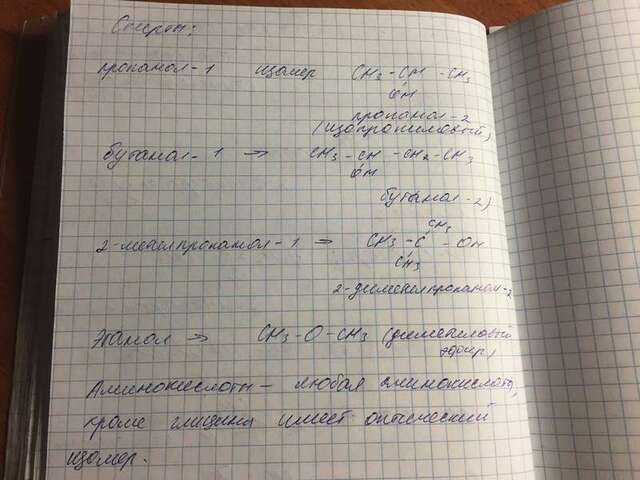 Спирты:
пропанол-1 изомер CH3 - CH - CH3
OH
пропанол-2
(изопропиловый)
бутанол-1 → CH3 - CH - CH2 - CH3
OH
бутанол-2)
2-метилпропанол-1 →
CH3
CH3 - C - OH
CH3
2-диметилпропанол-2
Этанол → CH3 - O - CH3 (диметиловый
эфир)
Аминокислоты - любая аминокислота,
кроме глицина имеет оптический
изомер.